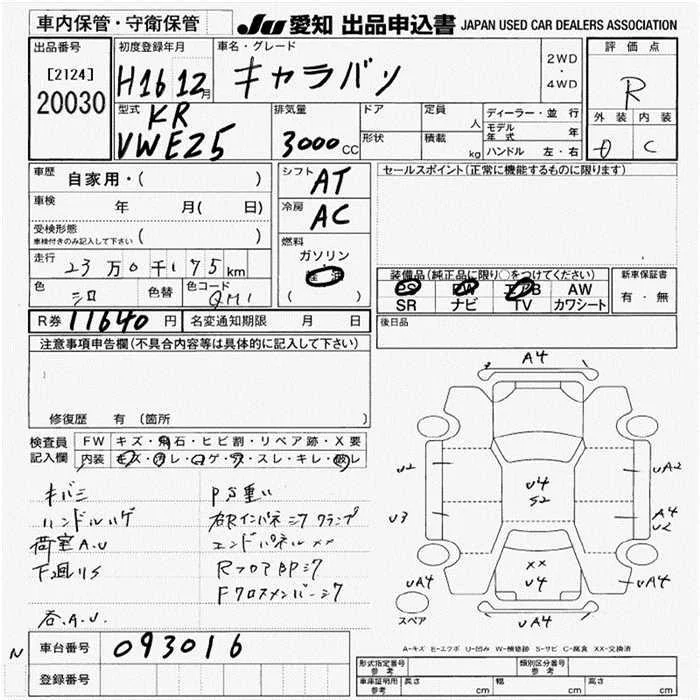 車内保管・守衛保管
JU 愛知 出品申込書 JAPAN USED CAR DEALERS ASSOCIATION
出品番号
[2124]
20030
初度登録年月
H16 12月
車名・グレード
キャラバン
2WD
・
4WD
評価点
R
外装 内装
C
型式
KR
VWE25
排気量
3000cc
ドア
形状
定員
人
積載
kg
ディーラー・並行
モデル年式 年
ハンドル 左・右
車歴
自家用・( )
車検
年 月( 日)
受検形態
車検付きのみ記入して下さい ( )
走行
23万0千175km
色
シロ
色替
色コード
QM1
シフト
AT
冷房
AC
燃料
ガソリン
軽油
( )
セールスポイント(正常に機能するものに限ります)
装備品(純正品に限り○をつけてください)
PS PW エアB AW
SR ナビ TV カワシート
新車保証書
有・無
R券 11640円
名変通知期限 月 日
後日品
注意事項申告欄(不具合内容等は具体的に記入して下さい)
修復歴 有(箇所 )
検査員記入欄
FW キズ・飛石・ヒビ割・リペア跡・X要
内装 キズ・汚レ・コゲ・穴・スレ・キレ・破レ
キバミ
ハンドルハゲ
荷室A.U
下廻りS
各A.U.
PS重い
右Rインパネシワクランプ
エンドパネルXX
RフロアBPシワ
Fクロスメンバーシワ
A4
U2
U3
U4
S2
UA2
A4
U2
XX
U4
UA4
UA4
UA4
スペア
A-キズ E-エクボ U-凹み W-補修跡 S-サビ C-腐食 XX-交換済
N
車台番号
093016
登録番号
形式指定番号
参考
類別区分番号
参考
車庫証明用
参考
長さ cm
幅 cm
高さ cm